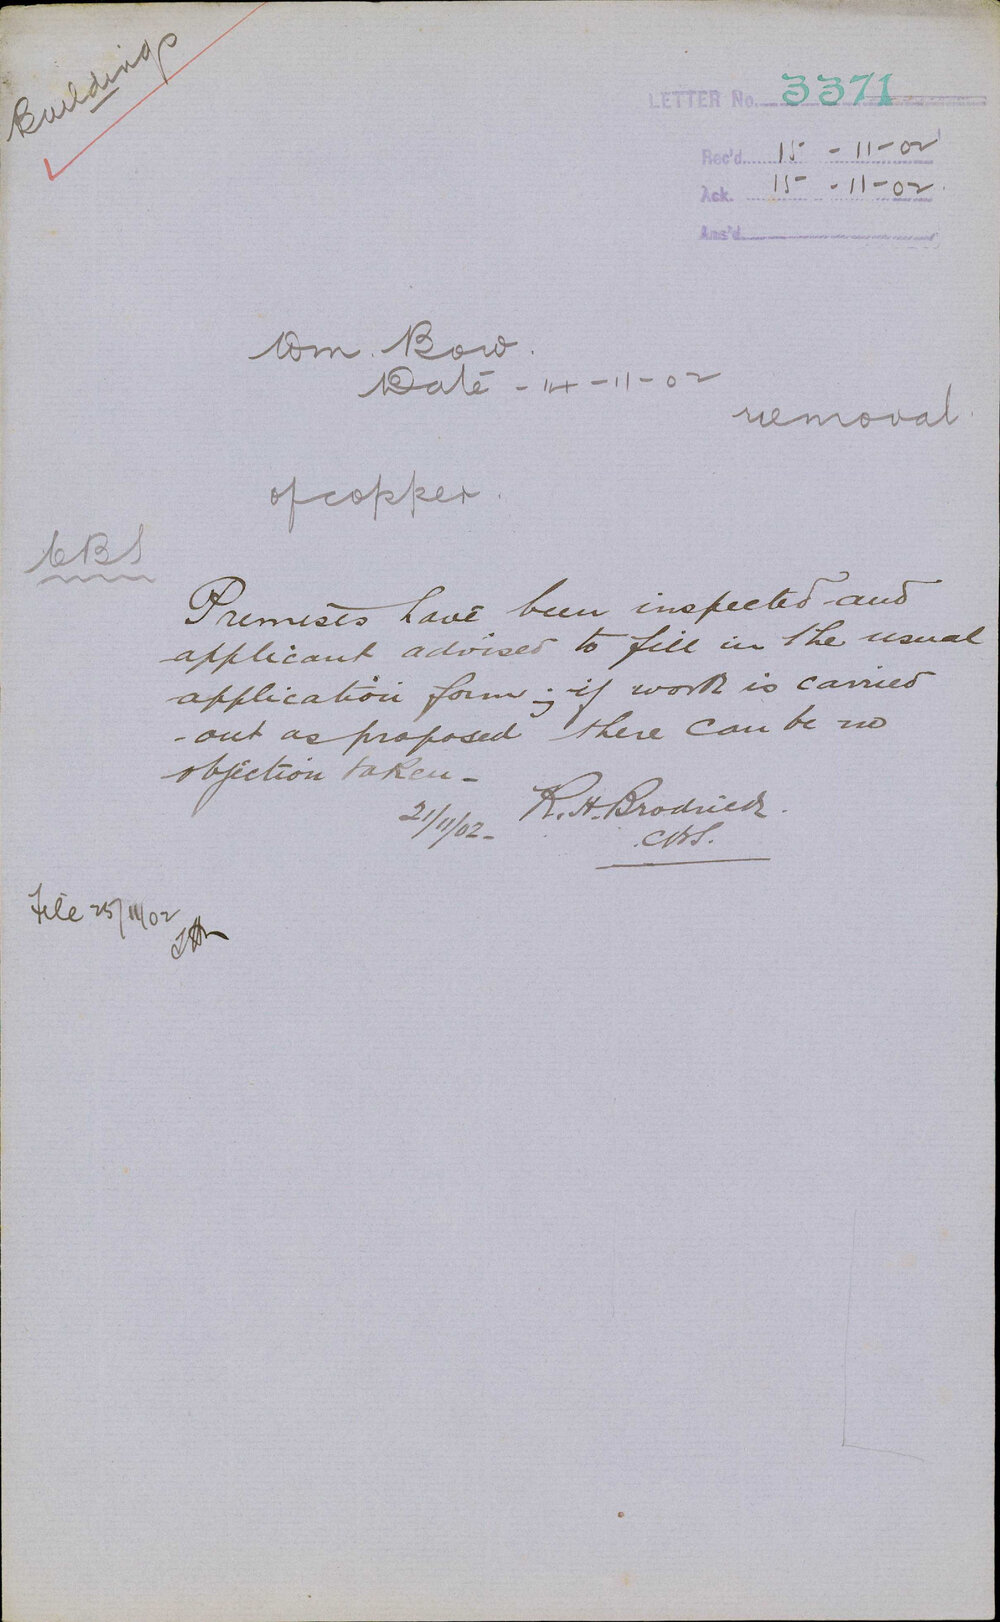 Buildings
LETTER No. 3371
Rec'd. 15-11-02
Ack. 15-11-02
Ans'd
Wm. Bow.
Date - 14-11-02
removal
of copper.
CBS
Premises have been inspected and
applicant advised to fill in the usual
application form; if work is carried
out as proposed there can be no
objection taken -
21/11/02- R. H. Brodrick.
CBS.
File 25/11/02